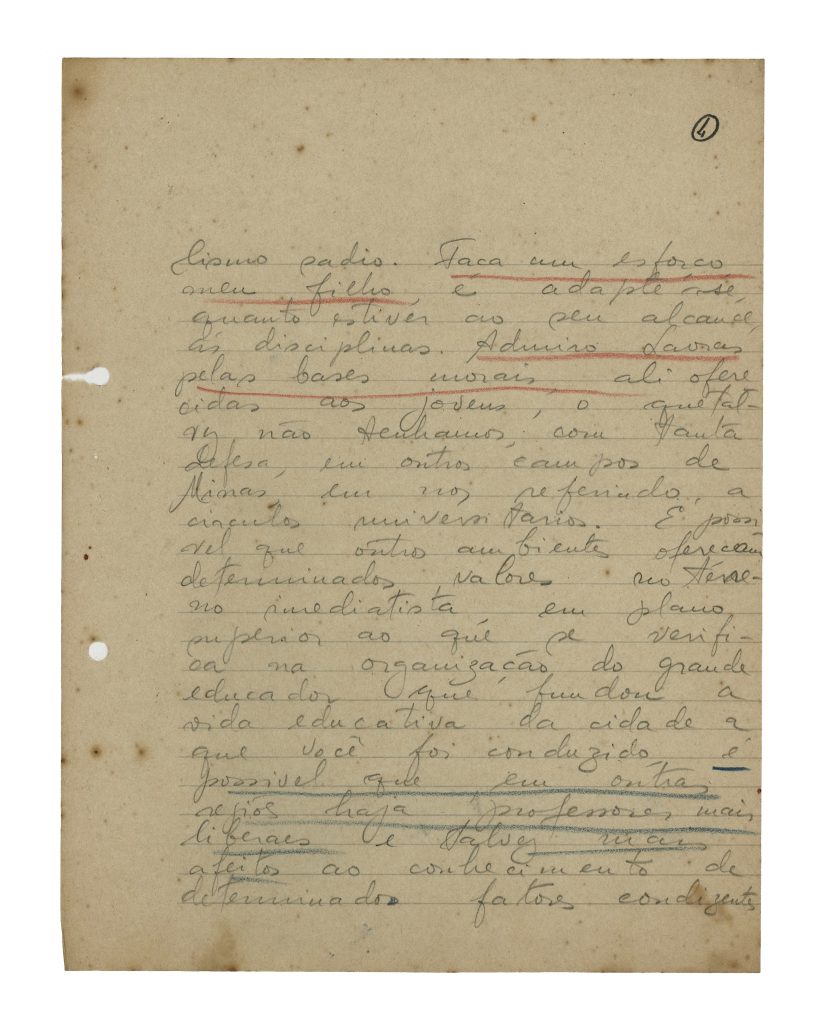 4
lismo sadio. Faca um esforco
meu filho, é adapte-se,
quanto estiver ao seu alcance,
ás disciplinas. Admiro Lavras
pelas bases morais, ali ofere
cidas aos jovens, o que tal-
vez não tenhamos, com tanta
defesa, em outros campos de
Minas, em nos referindo, a
circulos universitarios. É possi
vel que outros ambientes oferecam
determinados valores no térre-
no imediatista em plano
superior ao que se verifi-
ca na organização do grande
educador que fundou a
vida educativa da cidade a
que você foi conduzido, é
possivel que em outras
regiõs haja professores mais
liberaes e talvez mais
afeitos ao conhecimento de
determinados fatores condizentes